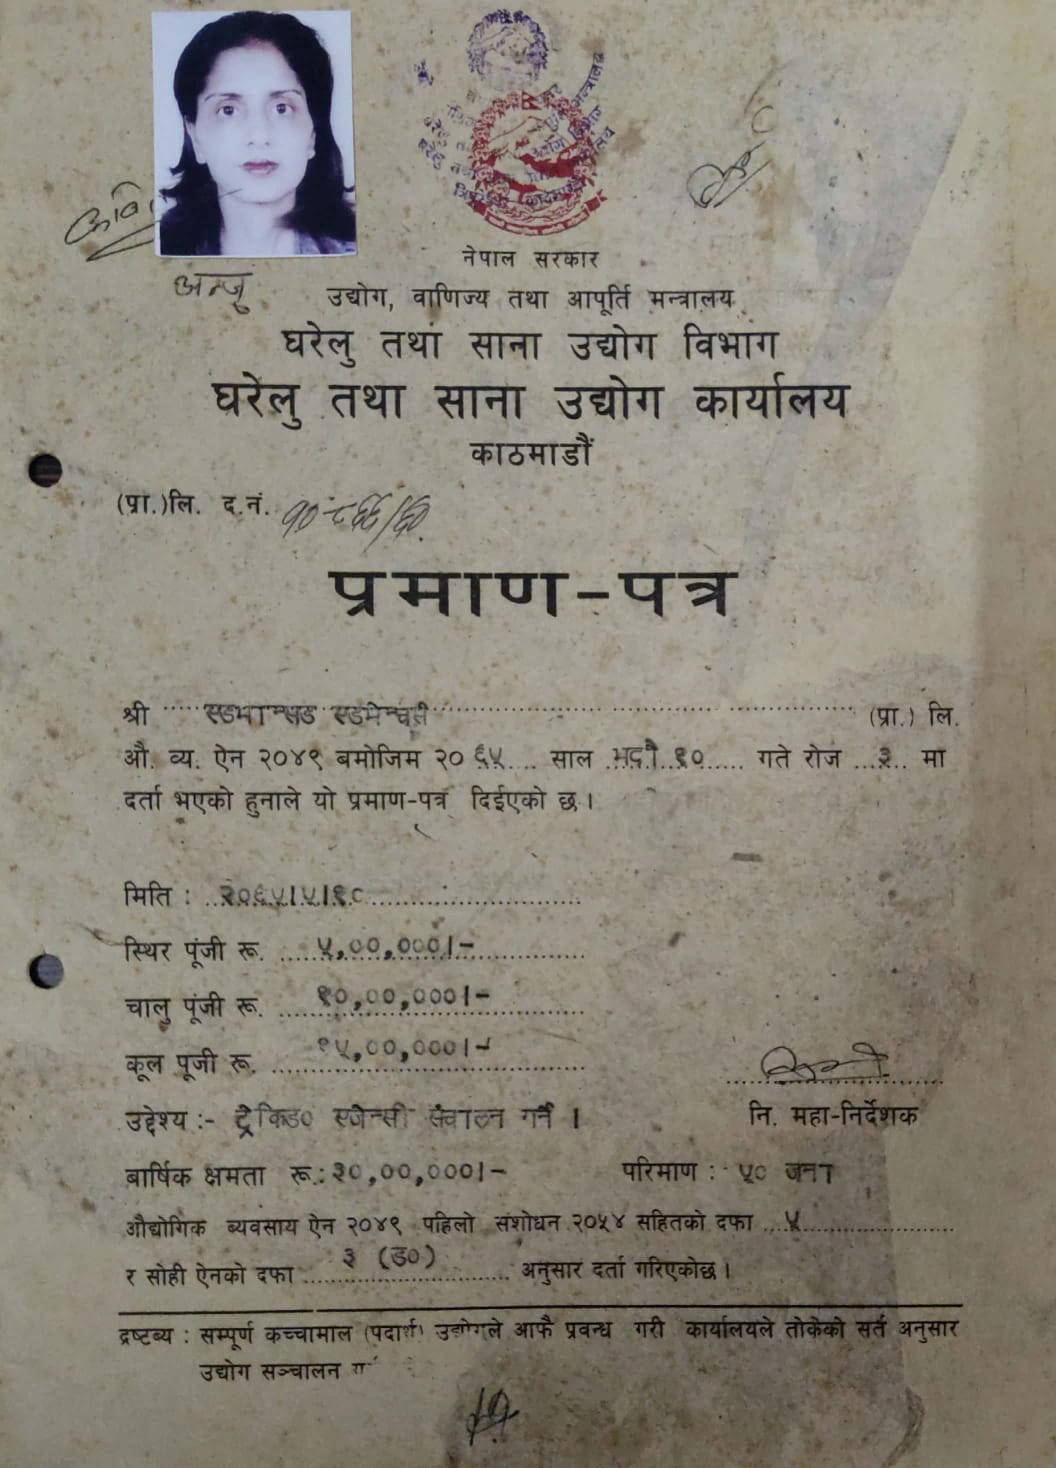 नेपाल सरकार
अन्जु
उद्योग, वाणिज्य तथा आपूर्ति मन्त्रालय
घरेलु तथा साना उद्योग विभाग
घरेलु तथा साना उद्योग कार्यालय
काठमाडौं
(प्रा.)लि. द.नं.
प्रमाण-पत्र
श्री (प्रा.) लि.
औ. व्य. ऐन २०४९ बमोजिम २० ६५ साल भदौ १० गते रोज ३ मा
दर्ता भएको हुनाले यो प्रमाण-पत्र दिईएको छ।
मिति : २०६५।५।१०
स्थिर पूंजी रू. ५,००,०००।-
चालु पूंजी रू. १०,००,०००।-
कूल पूजी रू. १५,००,०००।-
उद्देश्य :- ट्रेकिङ० एजेन्सी संचालन गर्ने ।
नि. महा-निर्देशक
बार्षिक क्षमता रू.: ३०,००,०००।- परिमाण : ५० जना
औद्योगिक ब्यवसाय ऐन २०४९ पहिलो संशोधन २०५४ सहितको दफा ५
र सोही ऐनको दफा ३ (ड०) अनुसार दर्ता गरिएकोछ।
द्रष्टब्य : सम्पूर्ण कच्चामाल (पदार्थ) उद्योगले आफै प्रवन्ध गरी कार्यालयले तोकेको सर्त अनुसार
उद्योग सञ्चालन